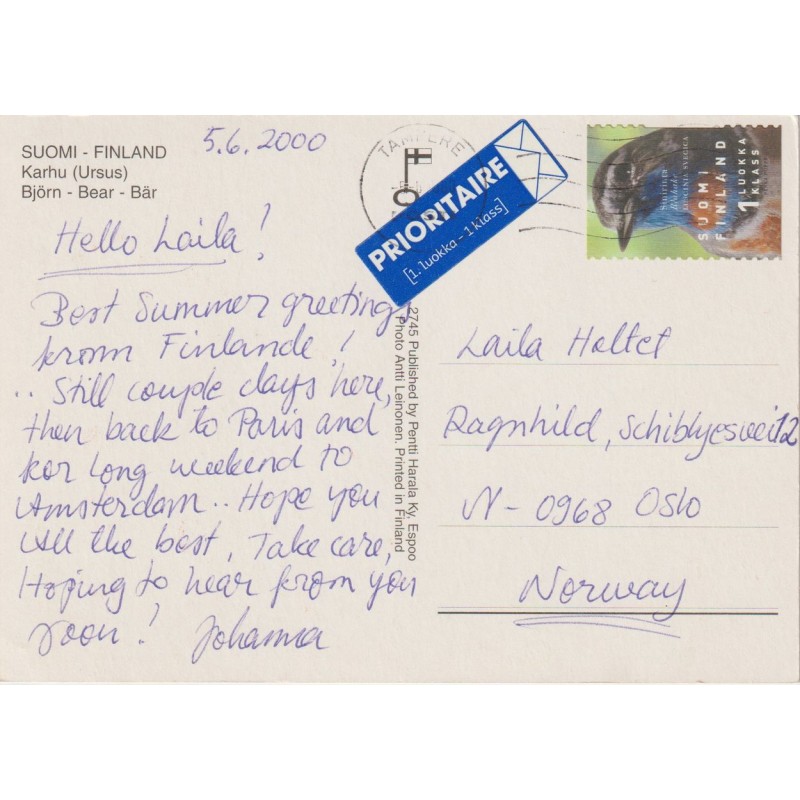 SUOMI - FINLAND
Karhu (Ursus)
Björn - Bear - Bär
5.6.2000
Hello Laila!
Best Summer greetings
from Finlande!
.. Still couple days here,
then back to Paris and
for long weekend to
Amsterdam.. Hope you
All the best, Take care,
Hoping to hear from you
soon! Johanna
2745 Published by Pentti Harala Ky, Espoo
Photo Antti Leinonen. Printed in Finland
TAMPERE
PRIORITAIRE
[1. luokka - 1 klass]
SUOMI
FINLAND
1 LUOKKA
KLASS
Laila Heltet
Ragnhild, Schiblyesvei 12
N-0968 Oslo
Norway